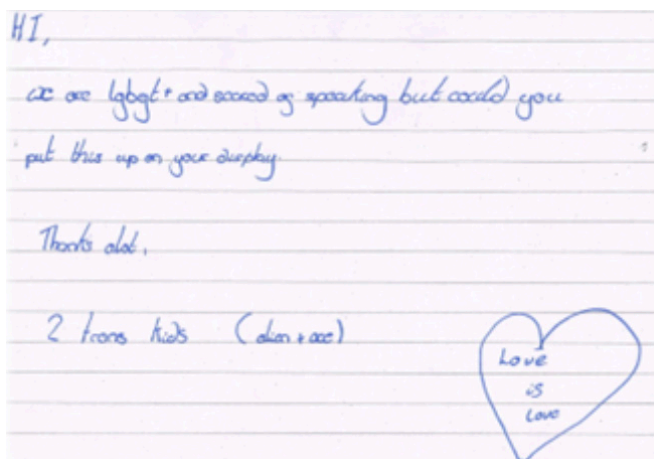 HI,
we are lgbqt+ and scared of speaking but could you
put this up on your display.
Thanks alot,
2 trans kids (
Love
is
Love